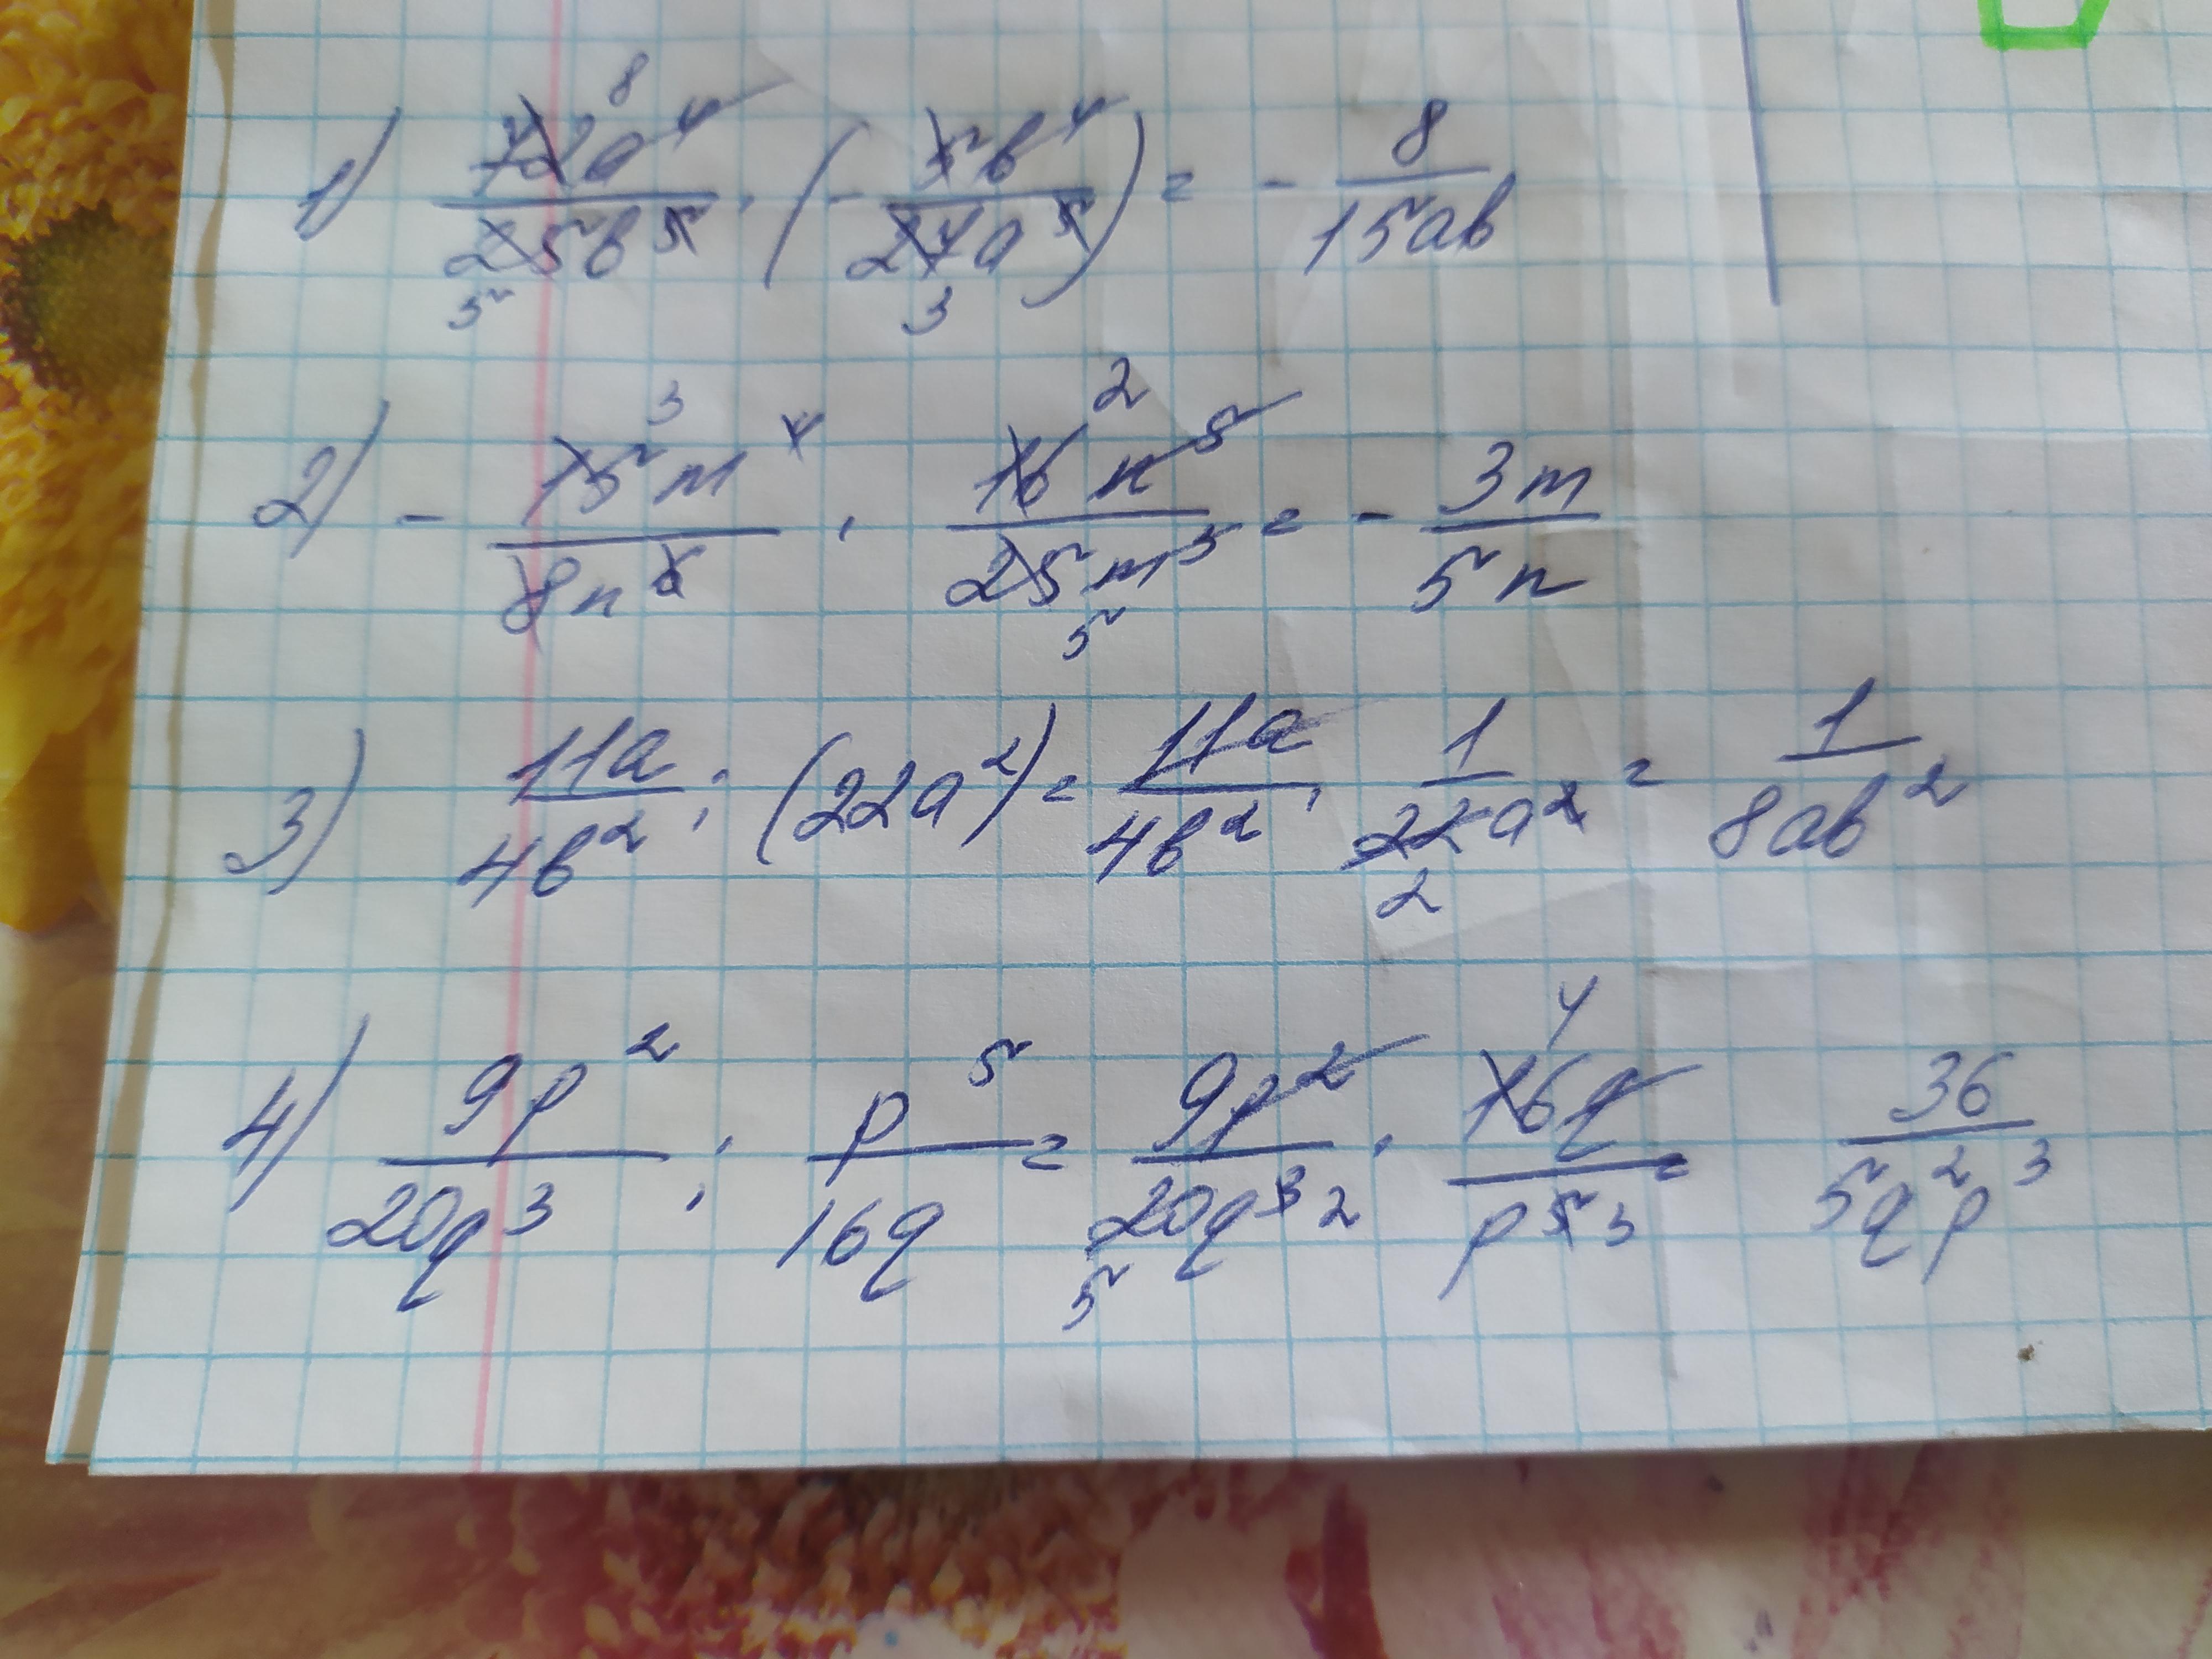 1) 72a⁴/25b⁵ · (- 5b⁴/27a⁵) = - 8/15ab
2) - 15m⁴/8n⁶ · 16n⁵/25m³ = - 3m/5n
3) 11a/4b² : (22a²) = 11a/4b² · 1/22a² = 1/8ab²
4) 9p²/20q³ : p⁵/16q = 9p²/20q³ · 16q/p⁵ = 36/5q²p³